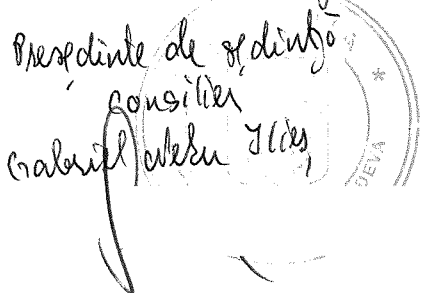 Președinte de ședință
consilier
Gabriel Ilieș
DEVA